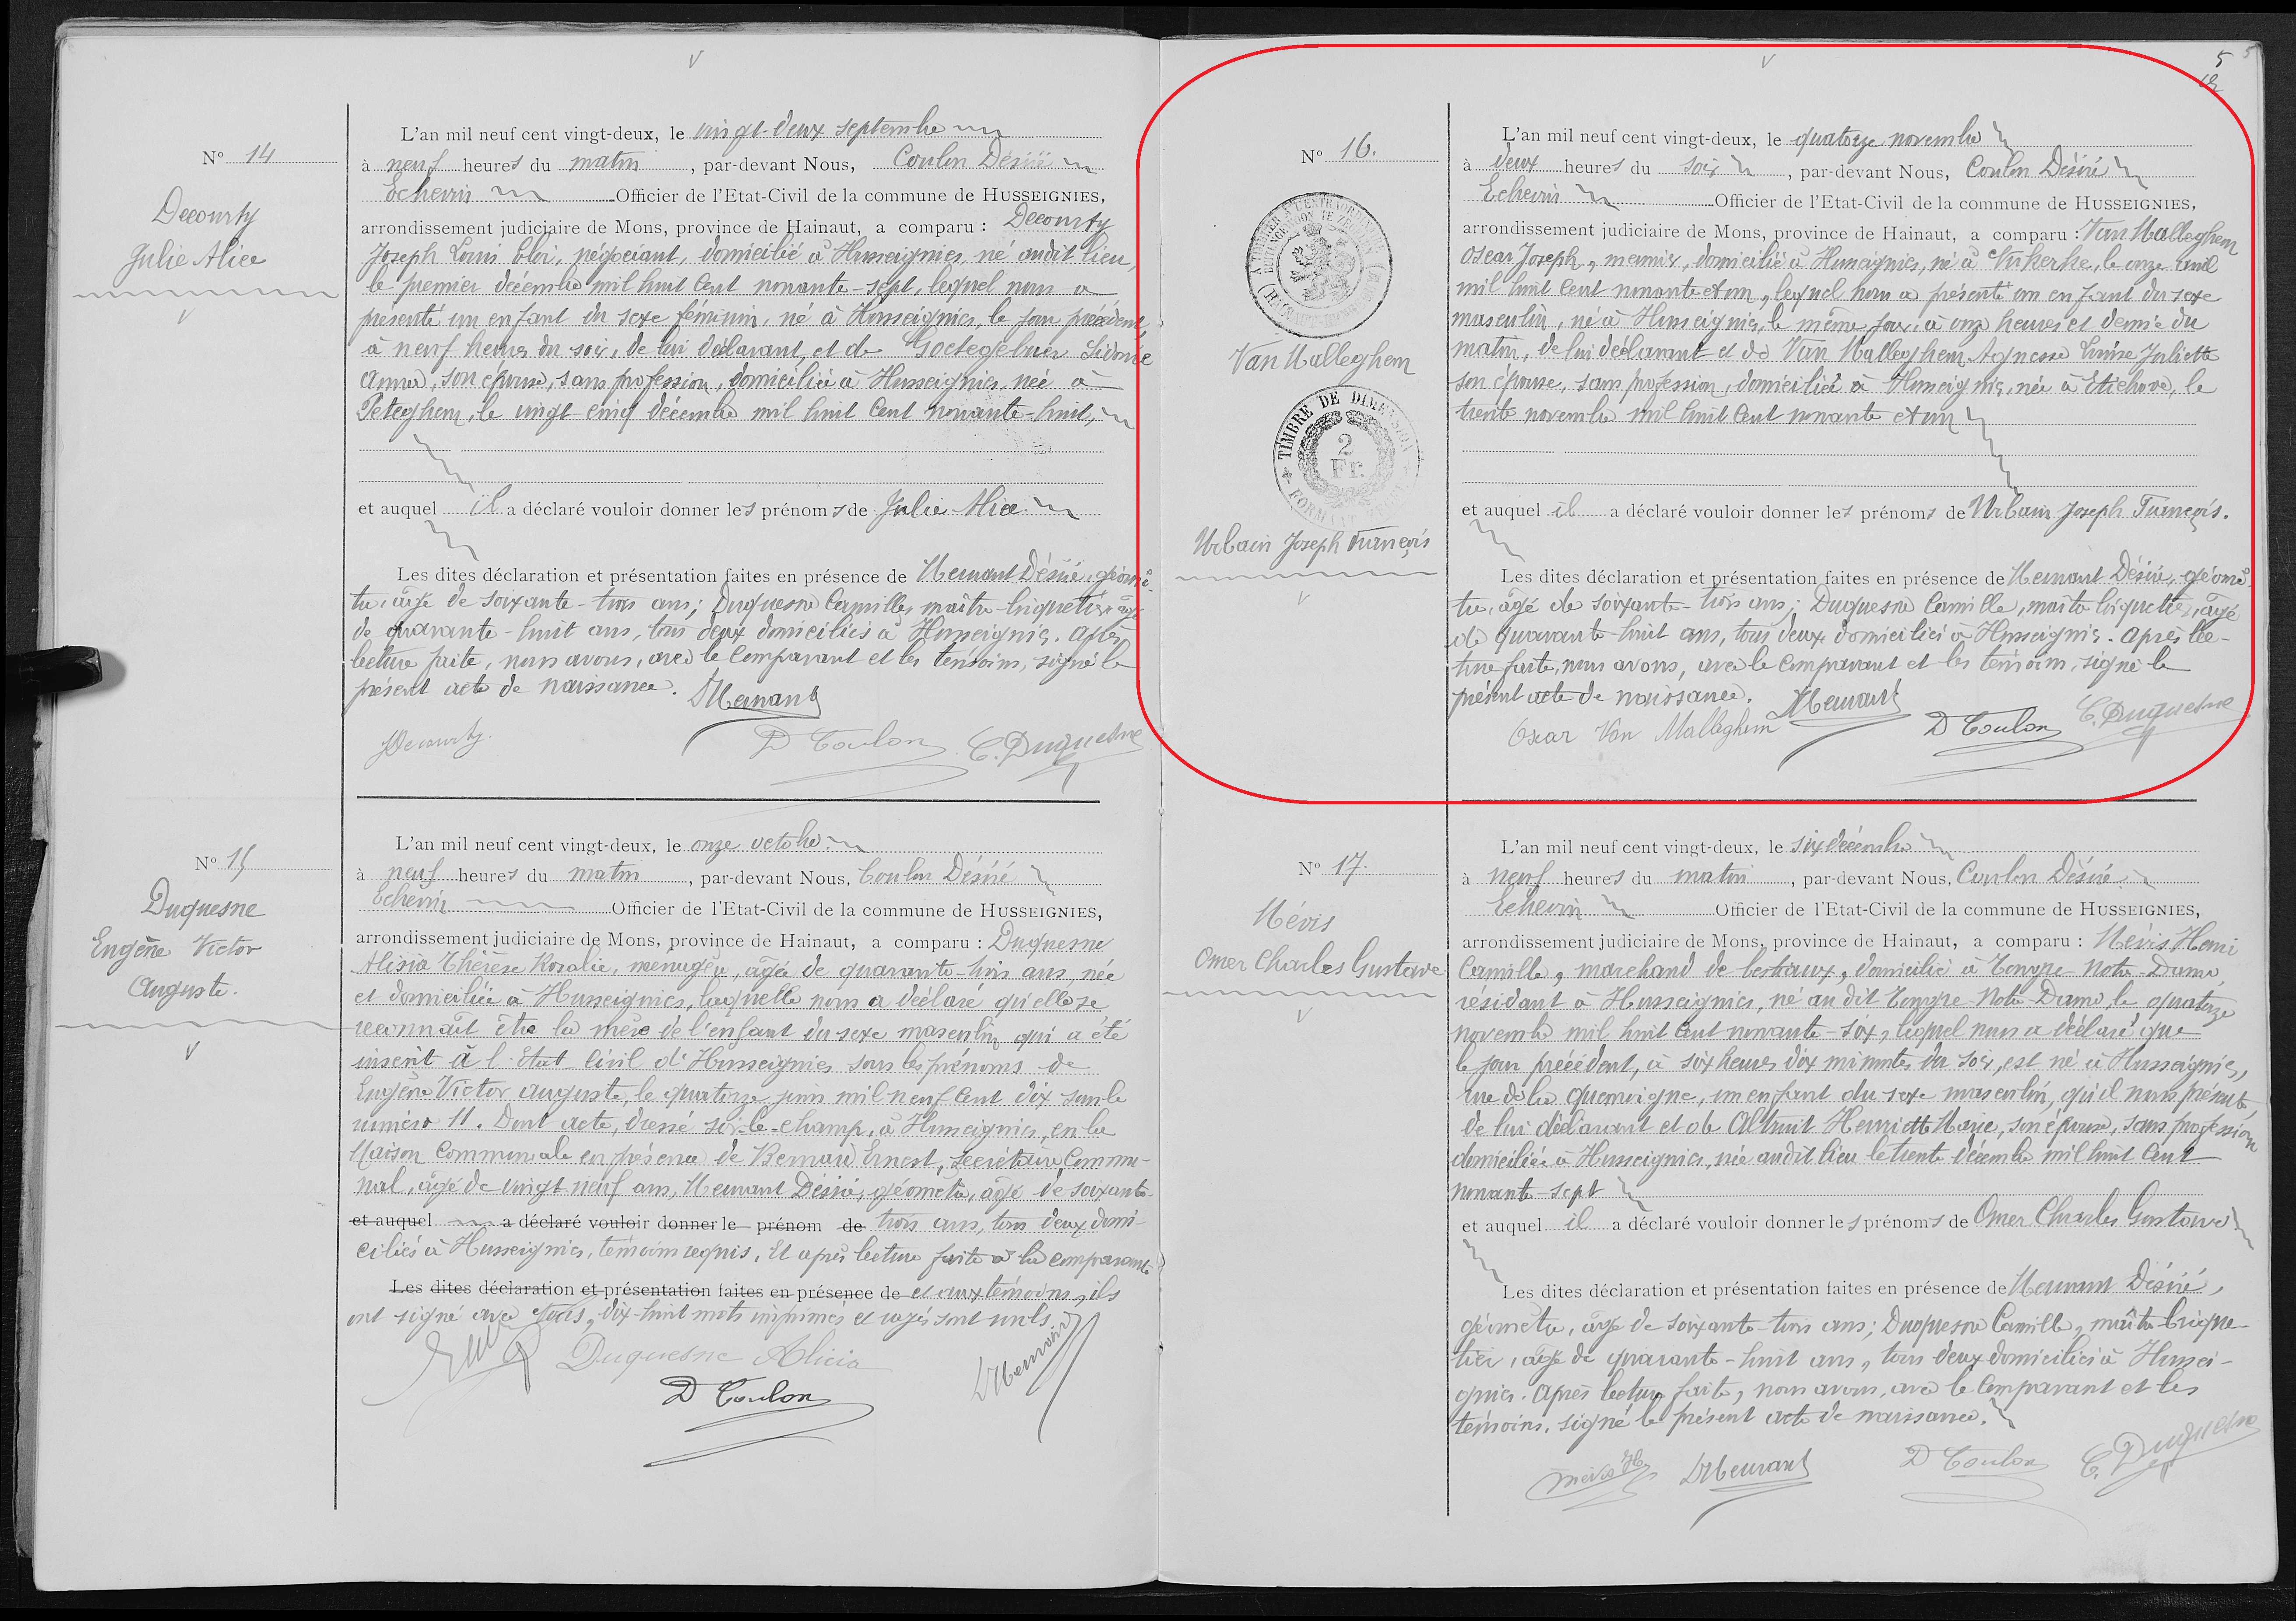 Nº 14
Decourty
Julie Alice
L'an mil neuf cent vingt-deux, le vingt-deux septembre
à neuf heures du matin, par-devant Nous, Coulon Désiré
Echevin Officier de l'Etat-Civil de la commune de HUSSEIGNIES,
arrondissement judiciaire de Mons, province de Hainaut, a comparu : Decourty
Joseph Louis Eloi, négociant, domicilié à Husseignies, né audit lieu,
le premier décembre mil huit cent nonante-sept, lequel nous a
présenté un enfant du sexe féminin, né à Husseignies, le jour précédent,
à neuf heures du soir, de lui déclarant, et de Goetegebuer Sidonie
Anna, son épouse, sans profession, domiciliée à Husseignies, née à
Peteghem, le vingt-cinq décembre mil huit cent nonante-huit,
et auquel il a déclaré vouloir donner les prénoms de Julie Alice
Les dites déclaration et présentation faites en présence de Meurant Désiré, géomè-
tre, âgé de soixante-trois ans; Duquesne Camille, maître briquetier, âgé
de quarante-huit ans, tous deux domiciliés à Husseignies. Après
lecture faite, nous avons, avec le comparant et les témoins, signé le
présent acte de naissance. DMeurant
JDecourty.
D Coulon C. Duquesne
Nº 15
Duquesne
Eugène Victor
Auguste.
L'an mil neuf cent vingt-deux, le onze octobre
à neuf heures du matin, par-devant Nous, Coulon Désiré
Echevin Officier de l'Etat-Civil de la commune de HUSSEIGNIES,
arrondissement judiciaire de Mons, province de Hainaut, a comparu : Duquesne
Alisia Thérèse Rosalie, ménagère, âgée de quarante-trois ans, née
et domiciliée à Husseignies, laquelle nous a déclaré qu'elle se
reconnaît être la mère de l'enfant du sexe masculin qui a été
inscrit à l'Etat civil d'Husseignies sous les prénoms de
Eugène Victor Auguste, le quatorze juin mil neuf cent dix sous le
numéro 11. Dont acte, dressé sur-le-champ, à Husseignies, en la
Maison Communale en présence de Ernest, secrétaire commu-
nal, âgé de vingt neuf ans, Meurant Désiré, géomètre, âgé de soixante-
et auquel a déclaré vouloir donner le prénom de trois ans, tous deux domi-
ciliés à Husseignies, témoins requis. Et après lecture faite à la comparante
Les dites déclaration et présentation faites en présence de et aux témoins, ils
ont signé avec nous, dix-huit mots imprimés et rayés sont nuls.
Duquesne Alicia
D Coulon
DMeurant
5
Nº 16.
Van Malleghem
TIMBRE DE DIMENSION
2
Fr.
Urbain Joseph François
L'an mil neuf cent vingt-deux, le quatorze novembre
à deux heures du soir, par-devant Nous, Coulon Désiré
Echevin Officier de l'Etat-Civil de la commune de HUSSEIGNIES,
arrondissement judiciaire de Mons, province de Hainaut, a comparu : Van Malleghem
Oscar Joseph, domicilié à Husseignies, né à Nukerke, le onze avril
mil huit cent nonante et un, lequel nous a présenté un enfant du sexe
masculin, né à Husseignies, le même jour, à onze heures et demie du
matin, de lui déclarant et de Van Malleghem Agnesse Louise Juliette
son épouse, sans profession, domiciliée à Husseignies, née à Etichove, le
trente novembre mil huit cent nonante et un
et auquel il a déclaré vouloir donner les prénoms de Urbain Joseph François.
Les dites déclaration et présentation faites en présence de Meurant Désiré, géomè-
tre, âgé de soixante-trois ans; Duquesne Camille, maître briquetier, âgé
de quarante-huit ans, tous deux domiciliés à Husseignies. Après lec-
ture faite, nous avons, avec le comparant et les témoins, signé le
présent acte de naissance. DMeurant
Oscar Van Malleghem D Coulon C. Duquesne
Nº 17.
Mévis
Omer Charles Gustave
L'an mil neuf cent vingt-deux, le six décembre
à neuf heures du matin, par-devant Nous, Coulon Désiré
Echevin Officier de l'Etat-Civil de la commune de HUSSEIGNIES,
arrondissement judiciaire de Mons, province de Hainaut, a comparu : Mévis Henri
Camille, marchand de bestiaux, domicilié à Tongre-Notre-Dame,
résidant à Husseignies, né au dit Tongre-Notre-Dame, le quatorze
novembre mil huit cent nonante-six, lequel nous a déclaré que
le jour précédent, à six heures dix minutes du soir, est né à Husseignies,
rue de la, un enfant du sexe masculin, qu'il nous présente,
de lui déclarant et de Altruit Henriette Marie, son épouse, sans profession
domiciliée à Husseignies, née audit lieu le trente décembre mil huit cent
nonante-sept
et auquel il a déclaré vouloir donner les prénoms de Omer Charles Gustave
Les dites déclaration et présentation faites en présence de Meurant Désiré,
géomètre, âgé de soixante-trois ans; Duquesne Camille, maître brique-
tier, âgé de quarante-huit ans, tous deux domiciliés à Hussei-
gnies. Après lecture faite, nous avons, avec le comparant et les
témoins, signé le présent acte de naissance.
Mévis H DMeurant D Coulon C. Duquesne